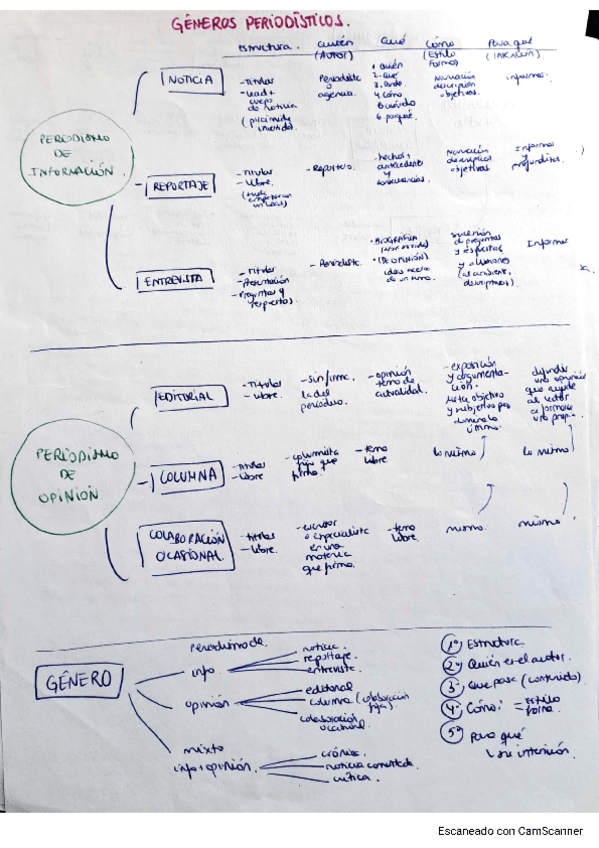 GÉNEROS PERIODÍSTICOS.
estructura. Quién Qué Cómo Para qué
(AUTOR) (Estilo forma) (INTENCIÓN)
NOTICIA
- Titular
- Lead +
cuerpo de noticia
(pirámide invertida)
Periodista
o
agencia.
1. Quién
2. Qué
3. Cuándo
4. Cómo
5. dónde
6. porqué.
Narración
descripción
objetivas.
informar.
PERIODISMO
DE
INFORMACIÓN.
REPORTAJE
- Titular
- Libre.
- Reportero.
- hechos +
antecedentes
y
consecuencias.
Narración
descripción
objetivas
Informar
y
profundizar.
ENTREVISTA
- Titular
- Presentación
- Preguntas y
respuestas.
- Periodista.
• BIOGRÁFICA
• (DE OPINIÓN)
idea acerca
de un tema.
sucesión
de preguntas
y respuestas
y
(al ambiente,
descriptivas).
Informar
PERIODISMO
DE
OPINIÓN.
EDITORIAL
- Titular
- Libre.
- sin firma.
la del
periódico.
- opinión
tema de
actualidad.
- exposición
y argumenta-
ción.
objetivo
y subjetivo
difundir
una opinión
que ayude
al lector
a formarse
una propia.
COLUMNA
- Titular
- Libre
- columnista
fijo que
firma.
- tema
libre.
lo mismo
lo mismo
COLABORACIÓN
OCASIONAL.
- Titular
- Libre.
- escritor
o especialista
en una
materia
que firma.
- tema
libre.
mismo.
mismo.
GÉNERO
periodismo de
info.
noticia
reportaje.
entrevista.
opinión
editorial
columna (colaboración
fija)
colaboración
ocasional
mixto
info + opinión.
crónica.
noticia comentada.
crítica.
1º) Estructura.
2º) Quién es el autor.
3º) Que pasa (contenido).
4º) Cómo: = Estilo
forma.
5º) Para qué
su intención.
Escaneado con CamScanner